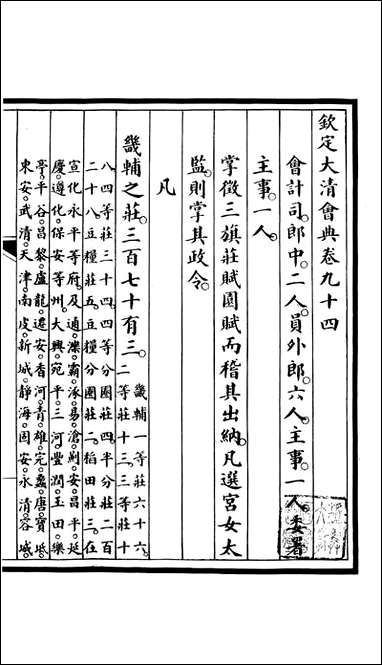 欽定大清會典卷九十四
會計司郎中二人員外郎六人主事一人委署
主事一人
掌徵三旗莊賦園賦而稽其出納凡選宮女太
監則掌其政令
凡
畿輔之莊三百七十有三
畿輔一等莊六十六
二等莊十三三等莊十
八四等莊三十四四等分圈莊四半分莊二百
二十八豆糧莊五豆糧分圈莊二稻田莊三在
宣化永平等府及通灤霸涿易滄薊安昌平延
慶遵化保安等州大興宛平三河豐潤玉田樂
亭平谷昌黎盧龍遷安香河青雄完蠡唐寶坻
東安武清天津南皮新城靜海固安永清容城